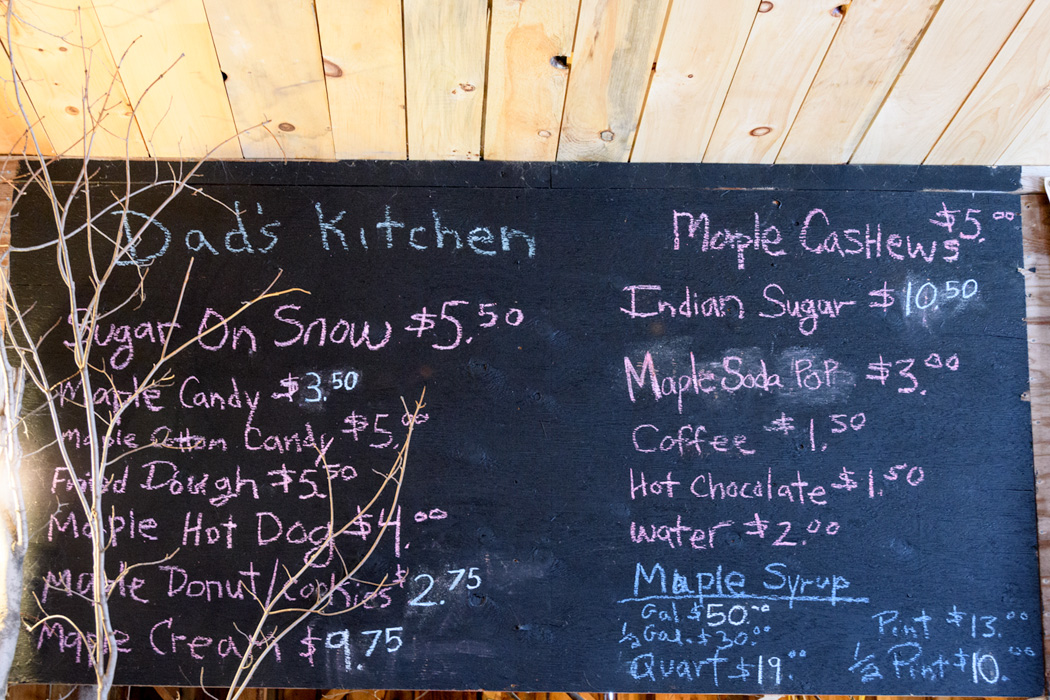 Dad's Kitchen
Sugar On Snow $5.50
Maple Candy $3.50
Maple Cotton Candy $5.00
Fried Dough $5.50
Maple Hot Dog $4.00
Maple Donut/Cookies $2.75
Maple Cream $9.75
Maple Cashews $5.00
Indian Sugar $10.50
Maple Soda Pop $3.00
Coffee $1.50
Hot Chocolate $1.50
water $2.00
Maple Syrup
Gal $50.00
1/2 Gal. $30.00
Quart $19.00
Pint $13.00
1/2 Pint $10.00